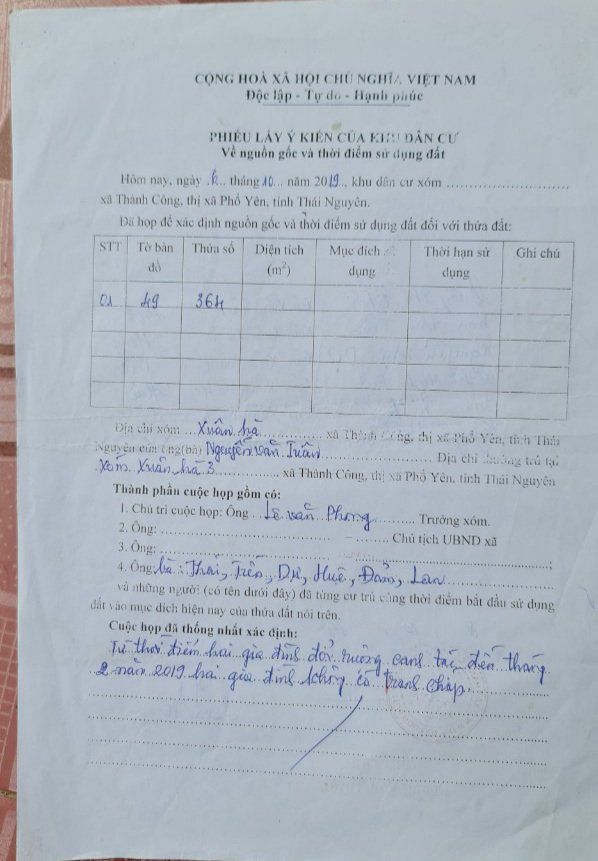 CỘNG HOÀ XÃ HỘI CHỦ NGHĨA VIỆT NAM
Độc lập - Tự do - Hạnh phúc
PHIẾU LẤY Ý KIẾN CỦA KHU DÂN CƯ
Về nguồn gốc và thời điểm sử dụng đất
Hôm nay, ngày ... tháng 10 ... năm 2019.., khu dân cư xóm ........................
xã Thành Công, thị xã Phổ Yên, tỉnh Thái Nguyên.
Đã họp để xác định nguồn gốc và thời điểm sử dụng đất đối với thửa đất:
STT Tờ bản đồ Thửa số Diện tích (m²) Mục đích sử dụng Thời hạn sử dụng Ghi chú
01 49 364
Địa chỉ xóm ...Xuân hà................ xã Thành Công, thị xã Phổ Yên, tỉnh Thái
Nguyên của ông(bà) Nguyễn văn Tuân........................ Địa chỉ thường trú tại
xóm Xuân hà 3................ xã Thành Công, thị xã Phổ Yên, tỉnh Thái Nguyên
Thành phần cuộc họp gồm có:
1. Chủ trì cuộc họp: Ông .. Lê văn Phong.......... Trưởng xóm.
2. Ông: ........................ Chủ tịch UBND xã
3. Ông: ........................
4. Ông, bà: Thái, Tiến, Dư, Huệ, Đản, Lan
và những người (có tên dưới đây) đã từng cư trú cùng thời điểm bắt đầu sử dụng
đất vào mục đích hiện nay của thửa đất nói trên.
Cuộc họp đã thống nhất xác định:
Từ thời điểm hai gia đình đổi ruộng canh tác đến tháng
2 năm 2019 hai gia đình không có tranh chấp.